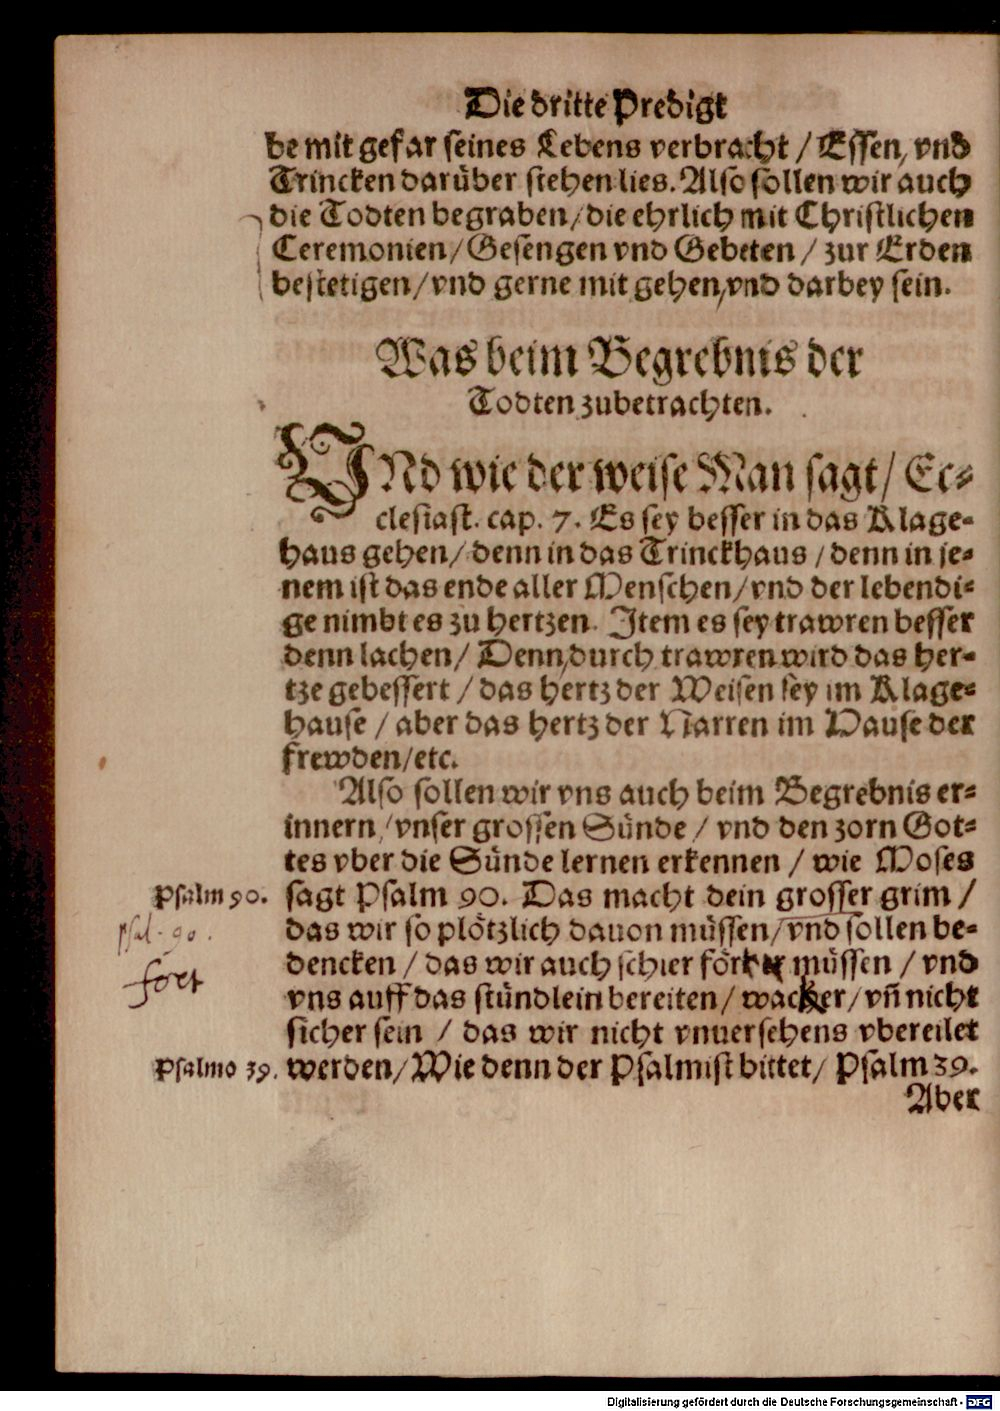 Die dritte Predigt
be mit gefar seines Lebens verbracht / Essen, vnd
Trincken darüber stehen lies. Also sollen wir auch
die Todten begraben / die ehrlich mit Christlichen
Ceremonien / Gesengen vnd Gebeten / zur Erden
bestetigen / vnd gerne mit gehen, vnd darbey sein.
Was beim Begrebnis der
Todten zubetrachten.
VNd wie der weise Man sagt / Ec-
clesiast. cap. 7. Es sey besser in das Klage-
haus gehen / denn in das Trinckhaus / denn in je-
nem ist das ende aller Menschen / vnd der lebendi-
ge nimbt es zu hertzen. Item es sey trawren besser
denn lachen / Denn durch trawren wird das her-
tze gebessert / das hertz der Weisen sey im Klage-
hause / aber das hertz der Narren im Hause der
frewden / etc.
Also sollen wir vns auch beim Begrebnis er-
innern / vnser grossen Sünde / vnd den zorn Got-
tes vber die Sünde lernen erkennen / wie Moses
Psalm 90. sagt Psalm 90. Das macht dein grosser grim /
psal. 90.
das wir so plötzlich dauon müssen / vnd sollen be-
fort
dencken / das wir auch schier müssen / vnd
vns auff das stündlein bereiten / wacker / vñ nicht
sicher sein / das wir nicht vnuersehens vbereilet
Psalmo 39. werden / Wie denn der Psalmist bittet / Psalm 39.
Aber
Digitalisierung gefördert durch die Deutsche Forschungsgemeinschaft - DFG